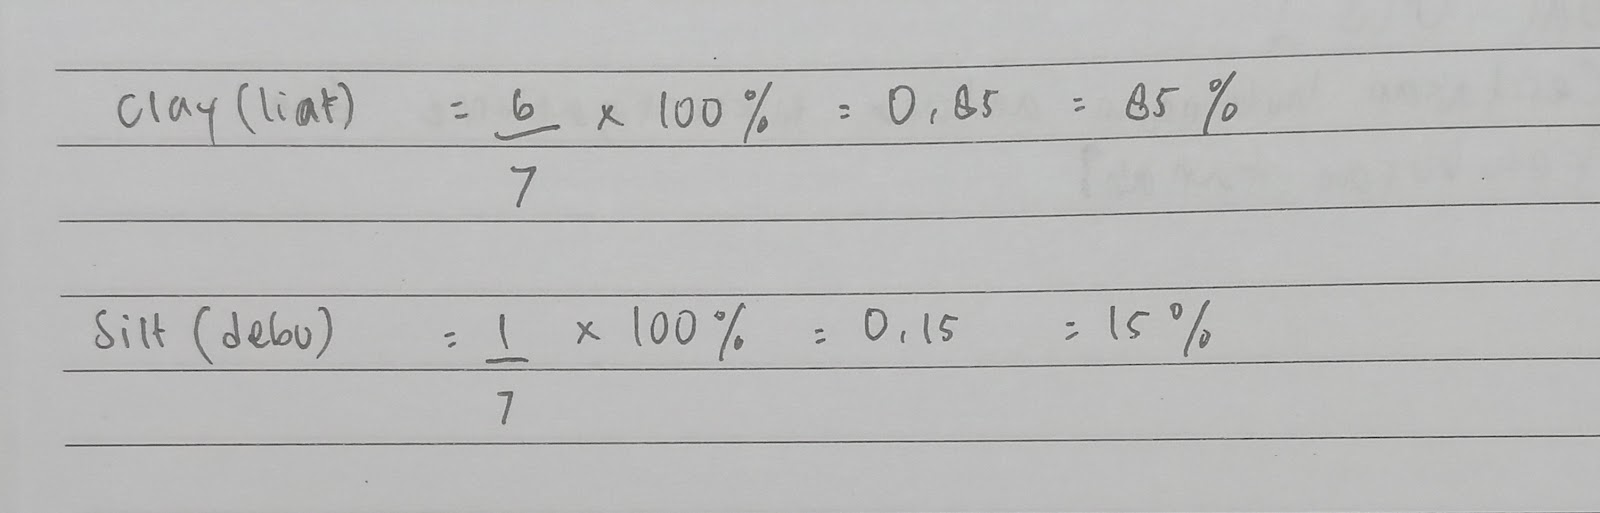 Clay (liat) = 6/7 x 100% = 0,85 = 85%
Silt (debu) = 1/7 x 100% = 0,15 = 15%